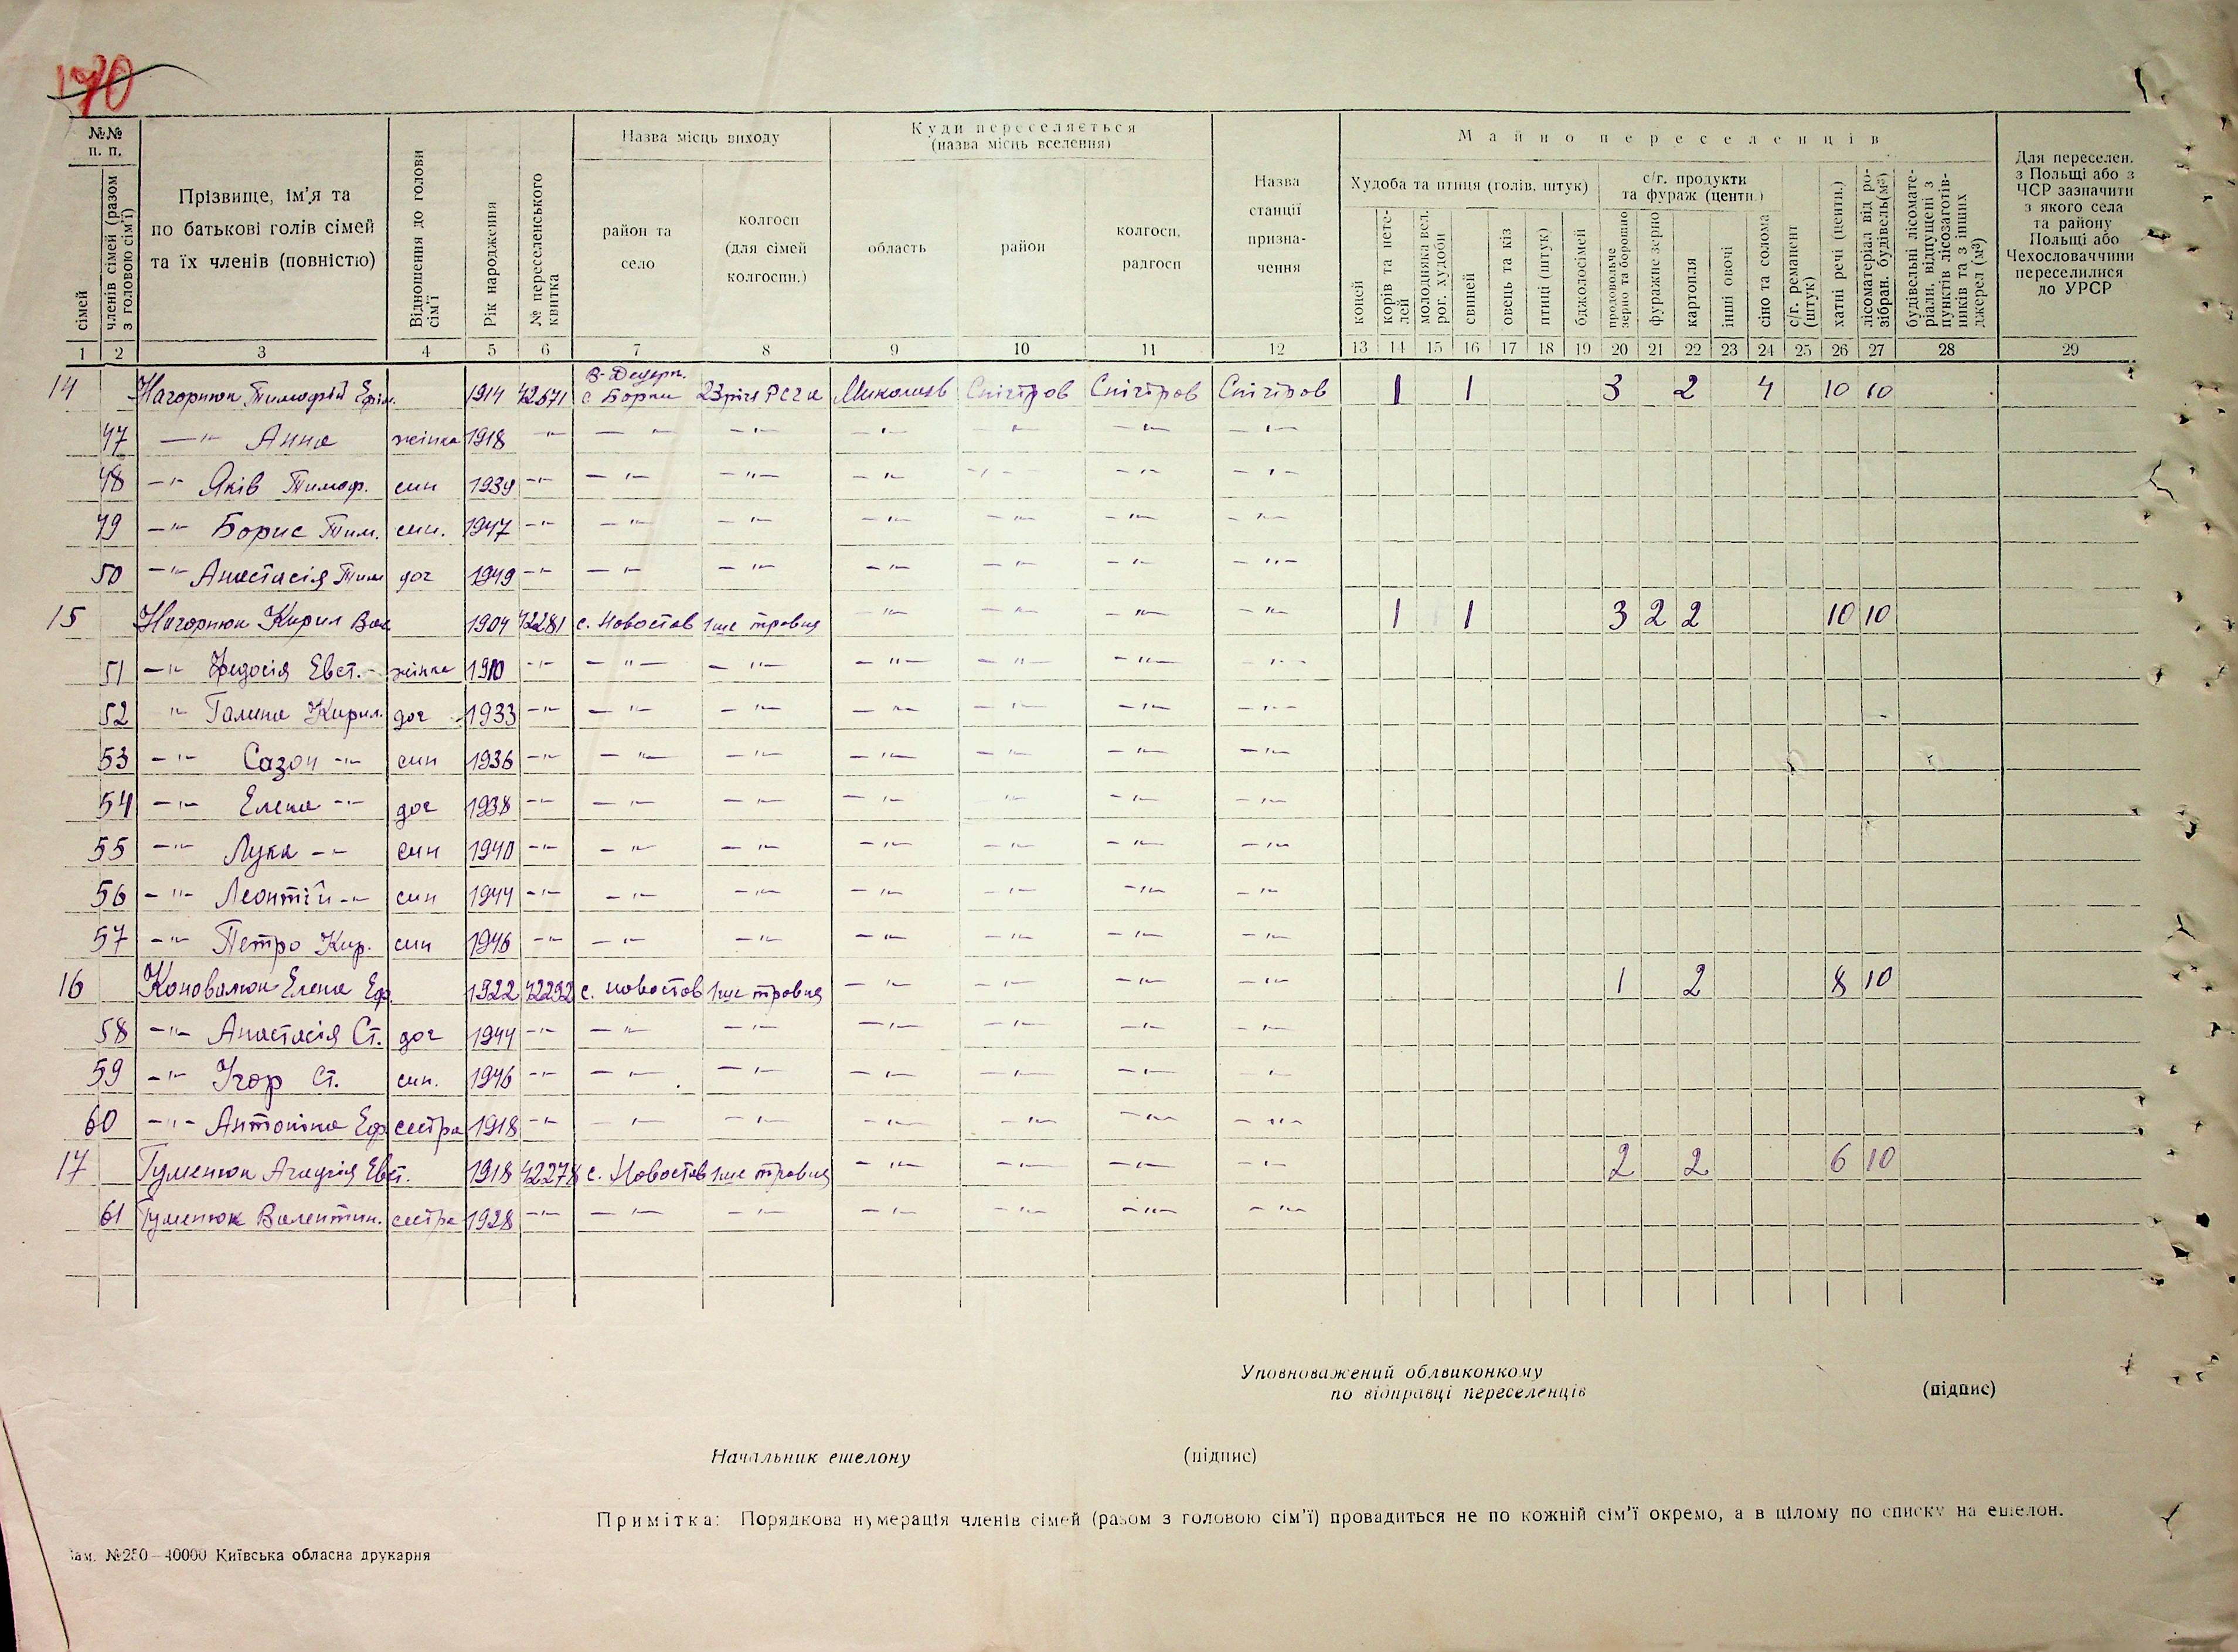 170
№№ п. п.
сімей
членів сімей (разом з головою сім'ї)
Прізвище, ім'я та по батькові голів сімей та їх членів (повністю)
Відношення до голови сім'ї
Рік народження
№ переселенського квитка
Назва місць виходу
район та село
колгосп (для сімей колгоспн.)
Куди переселяється (назва місць вселення)
область
район
колгосп, радгосп
Назва станції призначення
Майно переселенців
Худоба та птиця (голів, штук)
коней
корів та нетелей
молодняка вел. рог. худоби
свиней
овець та кіз
птиці (штук)
бджолосімей
с/г. продукти та фураж (центн.)
продовольче зерно та борошно
фуражне зерно
картопля
інші овочі
сіно та солома
с/г. реманент (штук)
хатні речі (центн.)
лісоматеріал від розібран. будівель (м³)
будівельні лісоматеріали, відпущені з пунктів лісозаготівників та з інших джерел (м³)
Для переселен. з Польщі або з ЧСР зазначити з якого села та району Польщі або Чехословаччини переселилися до УРСР
1 2 3 4 5 6 7 8 9 10 11 12 13 14 15 16 17 18 19 20 21 22 23 24 25 26 27 28 29
14 Нагорнюк Тимофій Ефім. 1914 42671 с Борки 23 річя РСЧА Миколаїв Снігіров Снігіров Снігіров 1 1 3 2 4 10 10
47 —"— Анна жінка 1918 -"- —"— —"— —"— —"— —"— —"—
48 —"— Яків Тимоф. син 1939 -"- —"— —"— —"— —"— —"— —"—
49 —"— Борис Тим. син. 1947 -"- —"— —"— —"— —"— —"— —"—
50 —"— Анастасія Тим дог 1949 -"- —"— —"— —"— —"— —"— —"—
15 Нагорнюк Кирил Вас 1904 42281 с. Новостав 1ше травня —"— —"— —"— —"— 1 1 3 2 2 10 10
51 —"— Федосія Евст. жінка 1910 -"- —"— —"— —"— —"— —"— —"—
52 " Галина Кирил. дог 1933 -"- —"— —"— —"— —"— —"— —"—
53 —"— Сазон -"- син 1936 -"- —"— —"— —"— —"— —"— —"—
54 —"— Елена -"- дог 1938 -"- —"— —"— —"— —"— —"— —"—
55 —"— Лука -"- син 1940 -"- —"— —"— —"— —"— —"— —"—
56 —"— Леонтій -"- син 1944 -"- —"— —"— —"— —"— —"— —"—
57 —"— Петро Кир. син 1946 -"- —"— —"— —"— —"— —"— —"—
16 Коновалюк Елена Еф. 1922 42292 с. новостав 1ше травня —"— —"— —"— —"— 1 2 8 10
58 —"— Анастасія Ст. дог 1944 -"- —"— —"— —"— —"— —"— —"—
59 —"— Ігор Ст. син. 1946 -"- —"— —"— —"— —"— —"— —"—
60 —"— Антоніна Еф сестра 1918 -"- —"— —"— —"— —"— —"— —"—
17 Гуменюк Агафія Евст. 1918 42278 с. Новостав 1ше травня —"— —"— —"— —"— 2 2 6 10
61 Гуменюк Валентин. сестра 1928 -"- —"— —"— —"— —"— —"— —"—
Уповноважений облвиконкому
по відправці переселенців (підпис)
Начальник ешелону (підпис)
Примітка: Порядкова нумерація членів сімей (разом з головою сім'ї) провадиться не по кожній сім'ї окремо, а в цілому по списку на ешелон.
Зам. №250—40000 Київська обласна друкарня